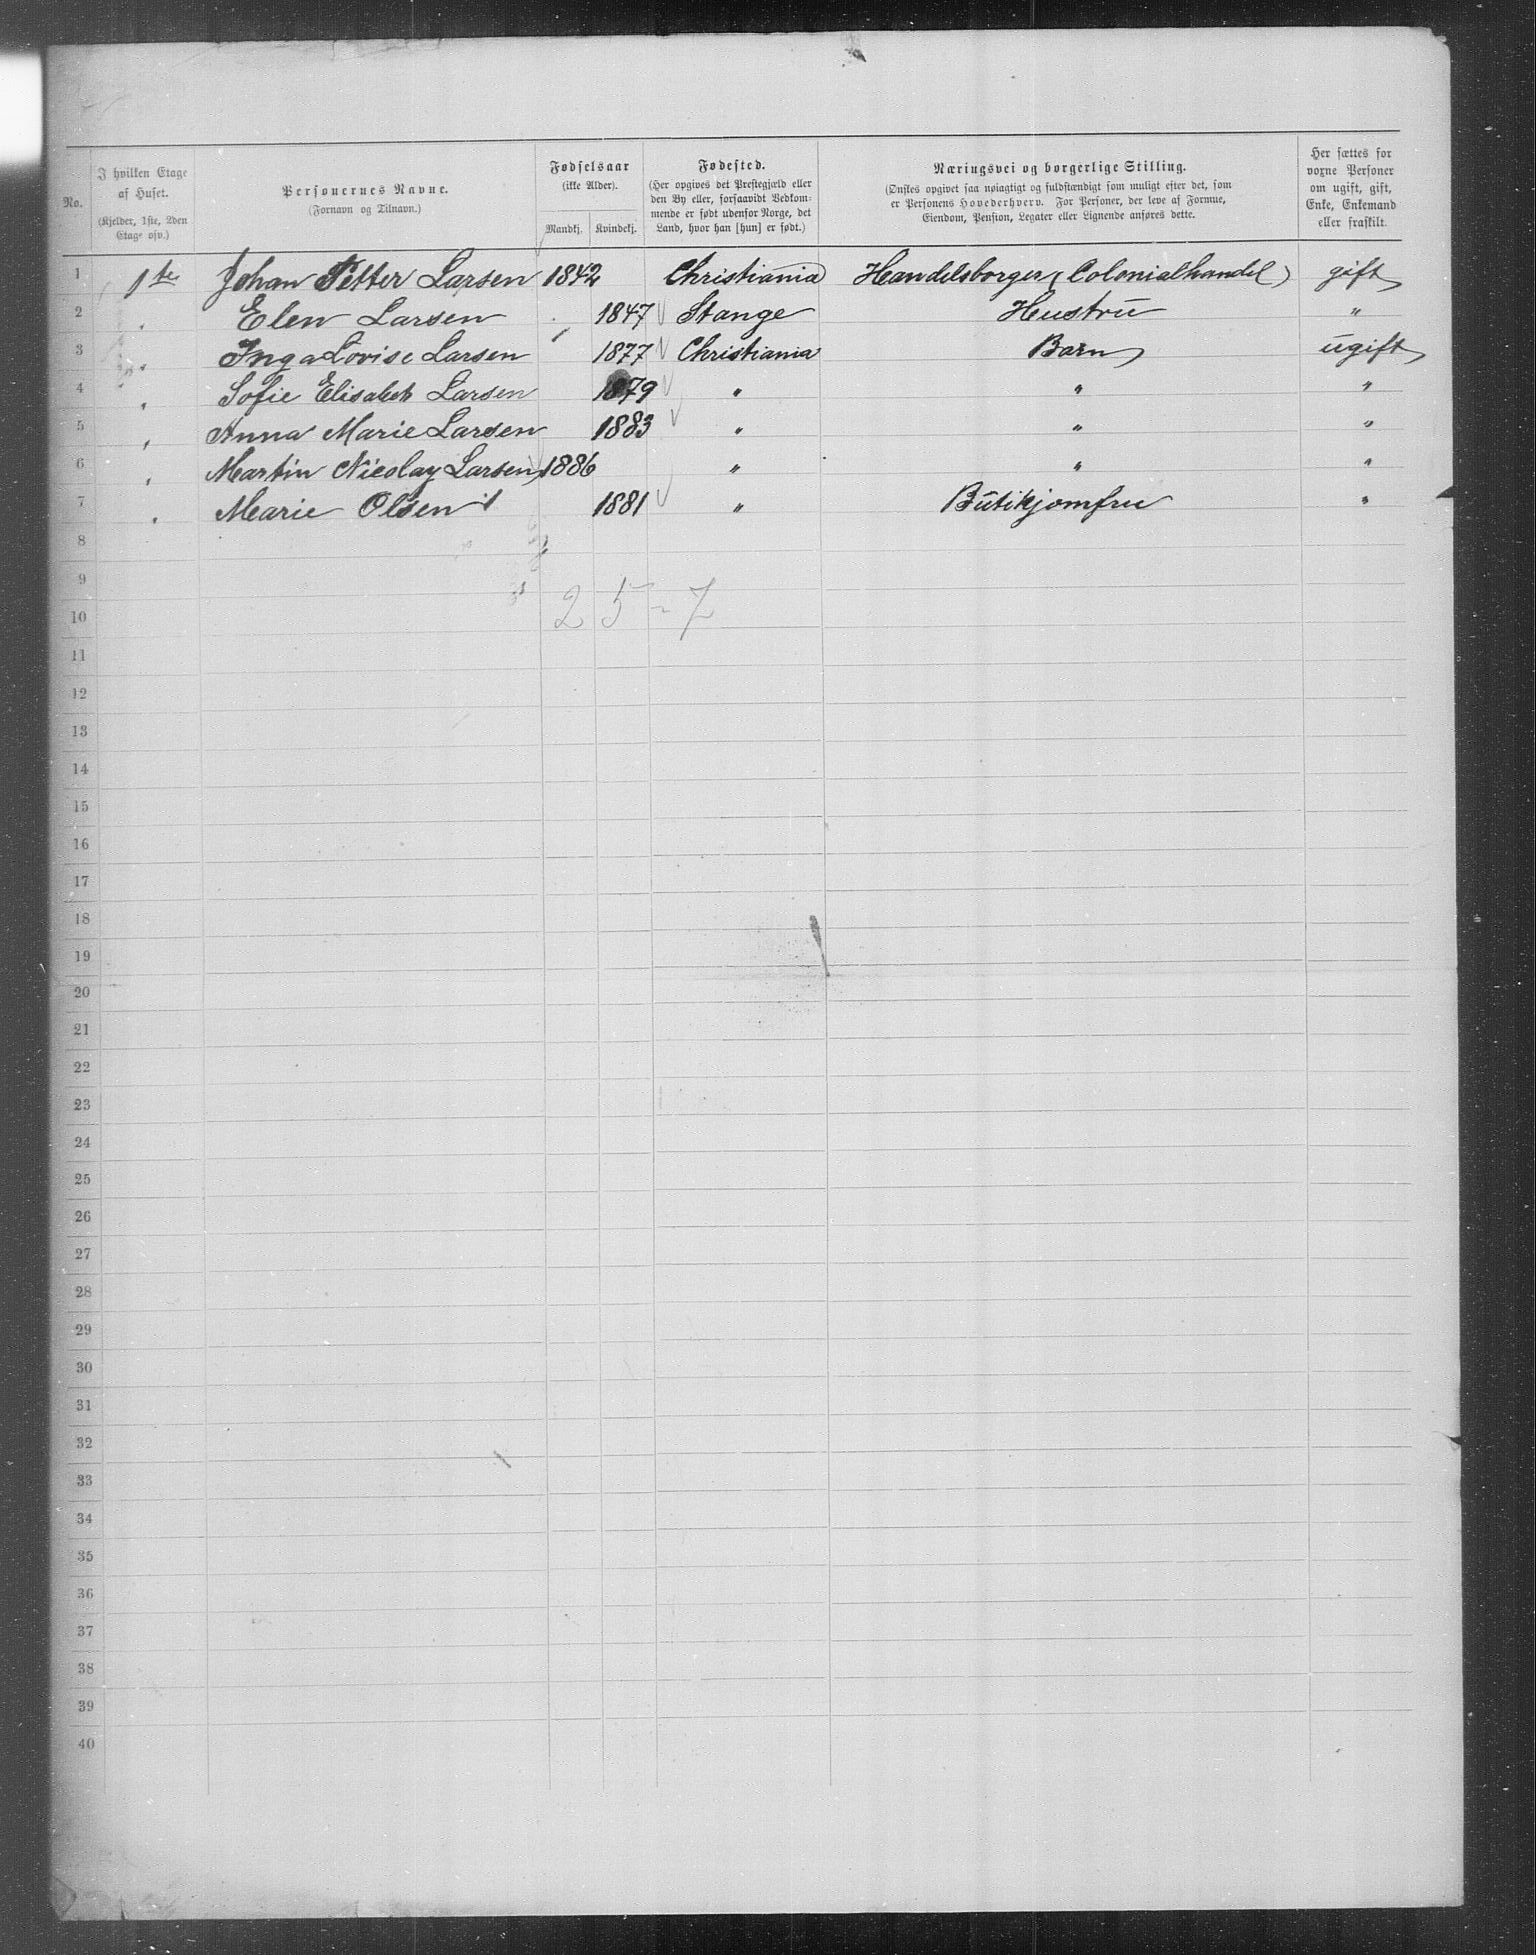 No.
I hvilken Etage af Huset.
(Kjelder, 1ste, 2den Etage osv.)
Personernes Navne.
(Fornavn og Tilnavn.)
Fødselsaar
(ikke Alder).
Mandkj. Kvindekj.
Fødested.
(Her opgives det Prestegjæld eller
den By eller, forsaavidt Vedkom-
mende er født udenfor Norge, det
Land, hvor han [hun] er født.)
Næringsvei og borgerlige Stilling.
(Ønskes opgivet saa nøiagtigt og fuldstændigt som muligt efter det, som
er Personens Hovederhverv. For Personer, der leve af Formue,
Eiendom, Pension, Legater eller Lignende anføres dette.
Her sættes for
voxne Personer
om ugift, gift,
Enke, Enkemand
eller fraskilt.
1 1ste Johan Petter Larsen 1842 Christiania Handelsborger (Colonialhandel) gift
2 " Elen Larsen 1847 Stange Hustru "
3 " Inga Lovise Larsen 1877 Christiania Barn ugift
4 " Sofie Elisabet Larsen 1879 " " "
5 " Anna Marie Larsen 1883 " " "
6 " Martin Nicolay Larsen 1886 " " "
7 " Marie Olsen 1881 " Butikjomfru "
8
9
10 2 5 - 7
11
12
13
14
15
16
17
18
19
20
21
22
23
24
25
26
27
28
29
30
31
32
33
34
35
36
37
38
39
40